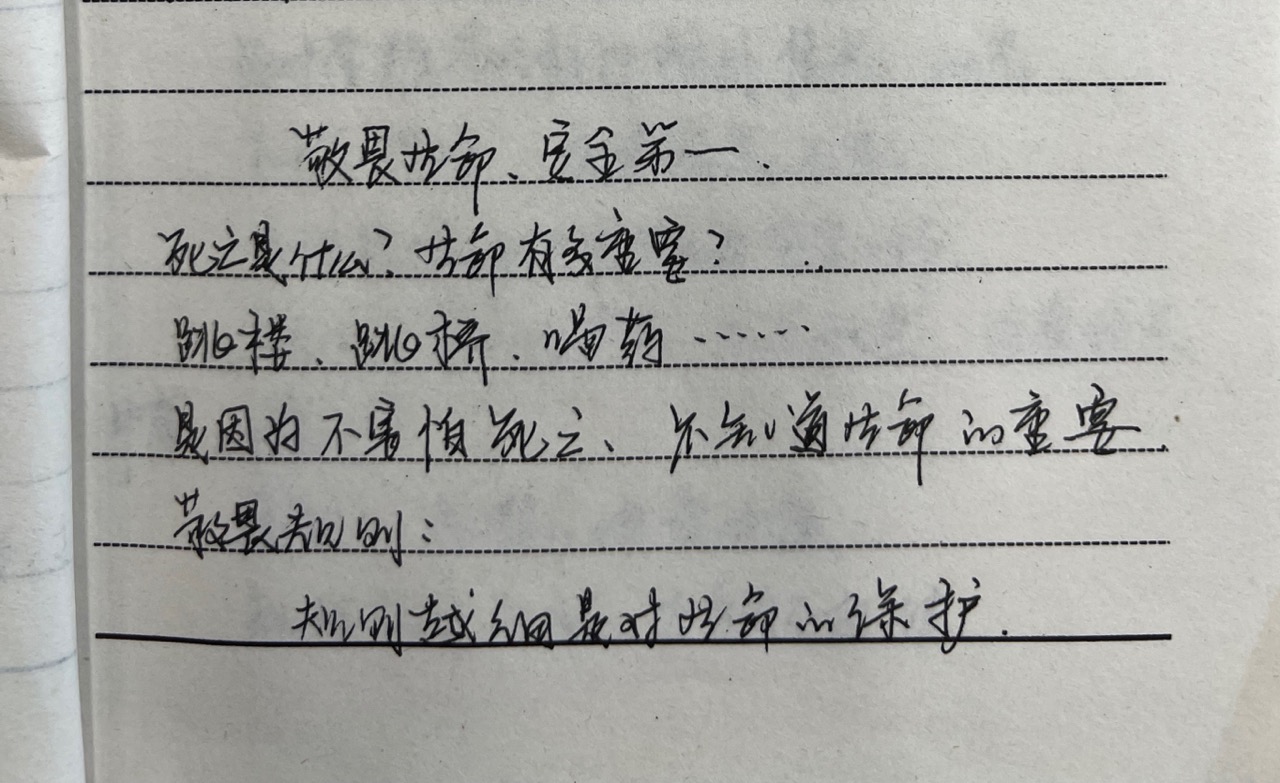 敬畏生命、安全第一.
死亡是什么?生命有多重要?
跳楼、跳桥、喝药……
是因为不害怕死亡、不知道生命的重要.
敬畏规则:
规则越细是对生命的保护.